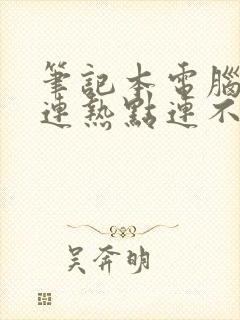 筆記本電腦
連熱點連不
吳奔明